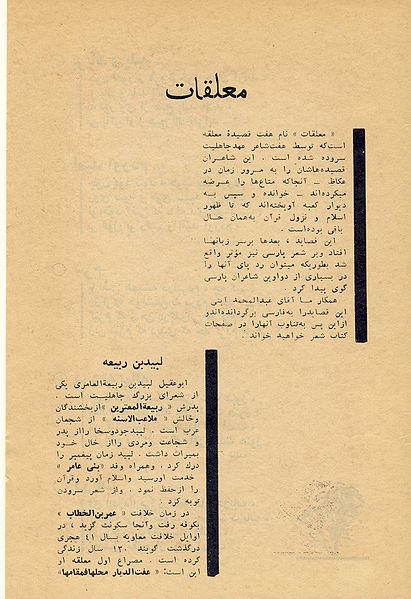 معلقات
« معلقات » نام هفت قصیدهٔ معلقه
است‌که توسط هفت‌شاعر عهدجاهلیت
سروده شده است . این شاعران
قصیده‌هاشان را به مرور زمان در
عکاظ ـ آنجاکه متاع‌ها را عرضه
میکرده‌اند ـ خوانده و سپس به
دیوار کعبه آویخته‌اند که تا ظهور
اسلام و نزول قرآن به‌همان حال
باقی بوده‌است .
این قصاید ، بعدها برسر زبانها
افتاد وبر شعر پارسی نیز مؤثر واقع
شد بطوریکه میتوان رد پای آنها را
در بسیاری از دواوین شاعران پارسی
گوی پیدا کرد .
همکار ما آقای عبدالمحمد آیتی
این قصایدرا به‌فارسی برگردانده‌اندو
ازاین پس به‌تناوب آنهارا در صفحات
کتاب شعر خواهید خواند .
لبیدبن ربیعه
ابوعقیل لبیدبن ربیعة‌العامری یکی
از شعرای بزرگ جاهلیت است .
پدرش « ربیعة‌المعترین » ازبخشندگان
وخالش « ملاعب‌الاسنه » از شجعان
عرب است . لبیدجودوسخا رااز پدر
و شجاعت ومردی رااز خال خود
بمیراث داشت . لبید زمان پیغمبر را
درک کرد . وهمراه وفد «بنی عامر »
خدمت اورسید واسلام آورد وقرآن
را ازحفظ نمود . واز شعر سرودن
توبه کرد .
در زمان خلافت « عمربن‌الخطاب »
بکوفه رفت وآنجا سکونت گزید ، در
اوایل خلافت معاویه بسال ۴۱ هجری
درگذشت گویند ۱۳۰ سال زندگی
کرده است . مصراع اول معلقه او
این است: « عفت‌الدیار محلهافمقامها»